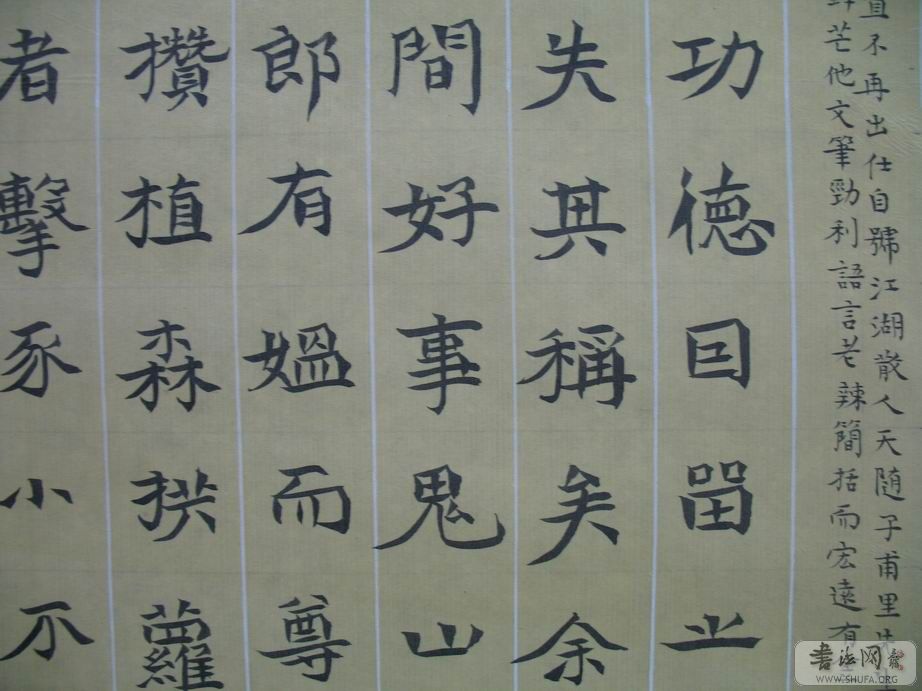 直不再出仕自號江湖散人天随子甫里先生
芒他文筆勁利語言老辣簡括而宏遠有
功德囙留之
失其稱矣余
間好事鬼山
郎有媪而尊
攢植森拱蘿
者擊豕小不
書法网
WWW.SHUFA.ORG